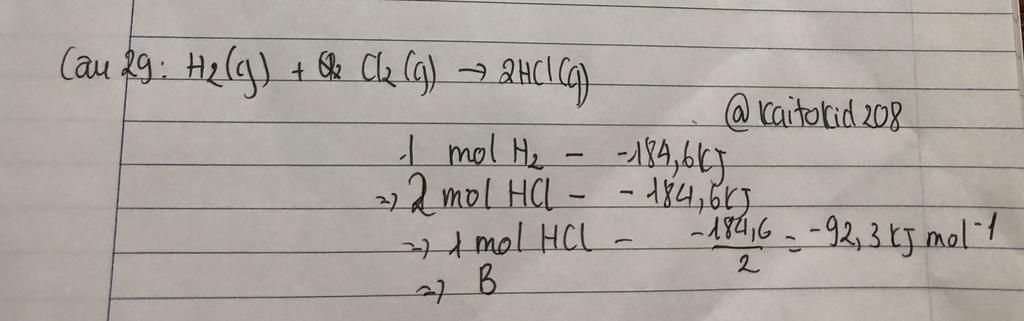 Câu 29: H₂(g) + Cl₂(g) → 2HCl(g)
@kaitokid208
1 mol H₂ - -184,6kJ
=> 2 mol HCl - -184,6kJ
=> 1 mol HCl - -184,6/2 = -92,3 kJ mol⁻¹
=> B